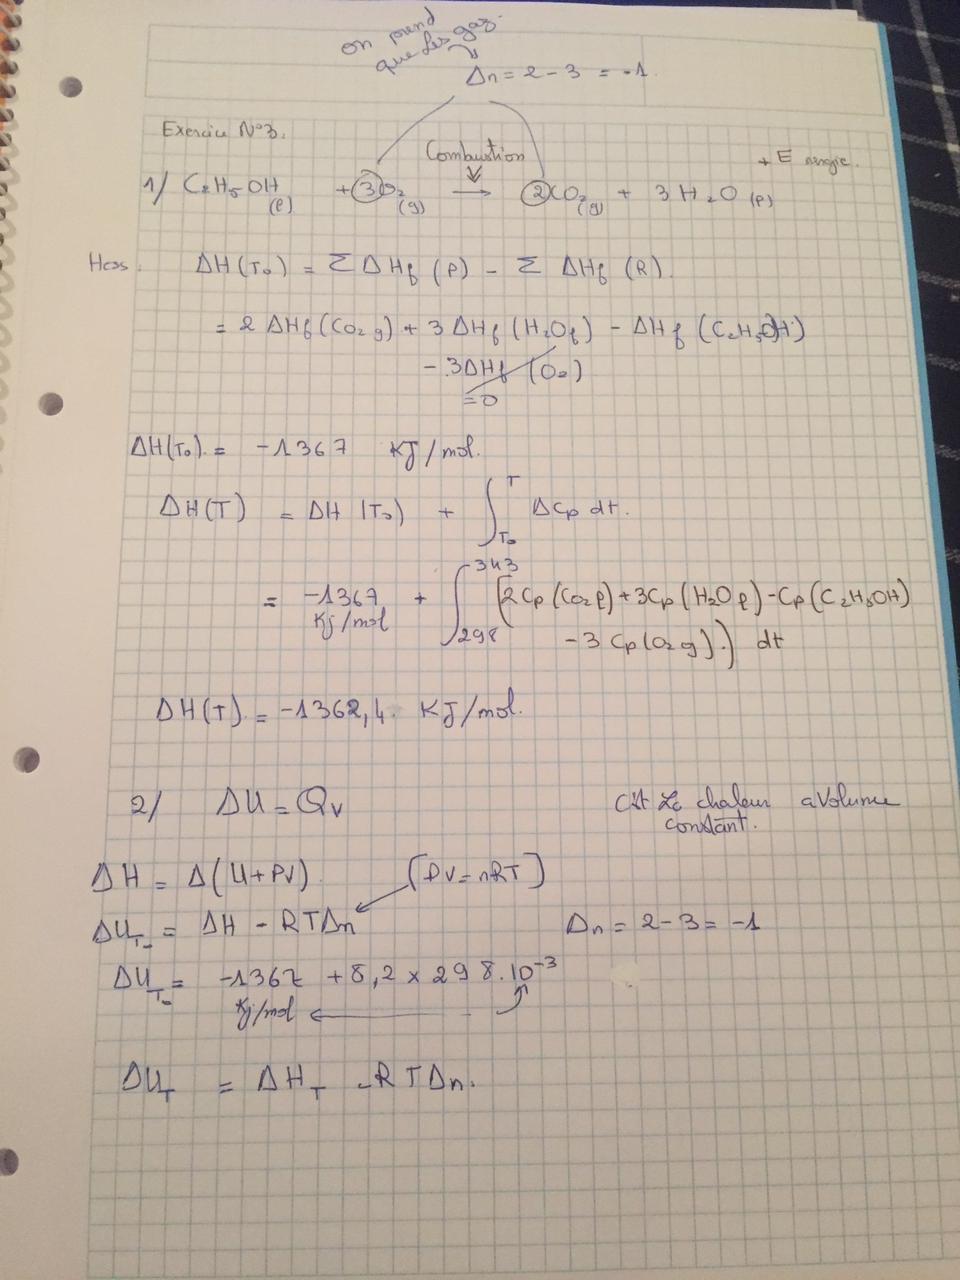 on prend
que les gaz.
Δn = 2 - 3 = -1.
Exercice N°3.
Combustion
+ E nergie.
1/ C2H5OH (l) + 3O2 (g) → 2CO2 (g) + 3H2O (l)
Hess. ΔH(T0) = Σ ΔHf (P) - Σ ΔHf (R).
= 2 ΔHf(CO2 g) + 3 ΔHf (H2Ol) - ΔHf (C2H5OH)
- 3ΔHf (O2)
= 0
ΔH(T0). = -1367 KJ/mol.
ΔH(T) = ΔH (T0) + ∫_{T0}^{T} ΔCp dt.
= -1367 Kj/mol + ∫_{298}^{343} [2Cp(CO2l)+3Cp(H2Ol)-Cp(C2H5OH)
-3 Cp(O2g).) dt
ΔH(T). = -1362,4. KJ/mol.
2/ ΔU = Qv C'st La chaleur a Volume
constant.
ΔH = Δ(U+PV). [PV=nRT]
ΔU_{T0} = ΔH - RTΔn Δn = 2-3= -1
ΔU_{T0} = -1367 +8,2 × 298.10^{-3}
Kj/mol ←
ΔU_T = ΔH_T -RTΔn.